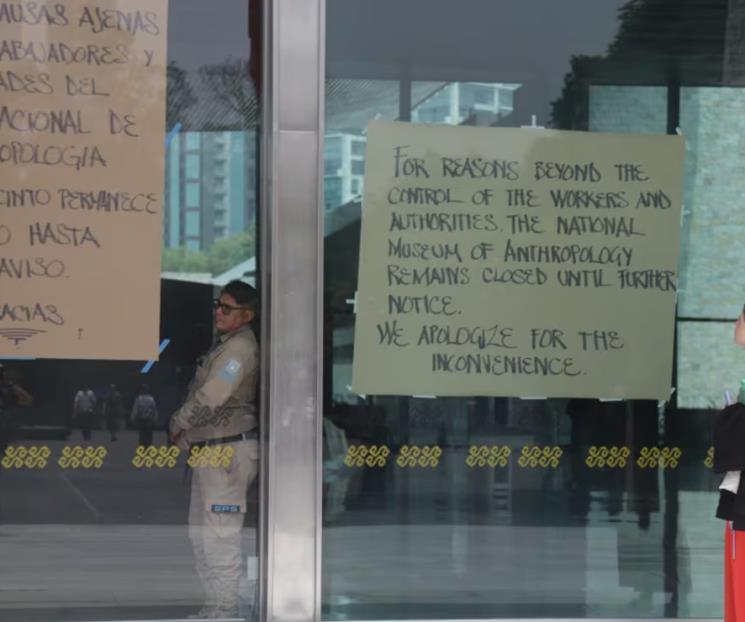 AUSAS AJENAS
ABAJADORES Y
ADES DEL
ACIONAL DE
OPOLOGIA
CINTO PERMANECE
O HASTA
AVISO.
ACIAS
EPS
FOR REASONS BEYOND THE
CONTROL OF THE WORKERS AND
AUTHORITIES, THE NATIONAL
MUSEUM OF ANTHROPOLOGY
REMAINS CLOSED UNTIL FURTHER
NOTICE.
WE APOLOGIZE FOR THE
INCONVENIENCE.